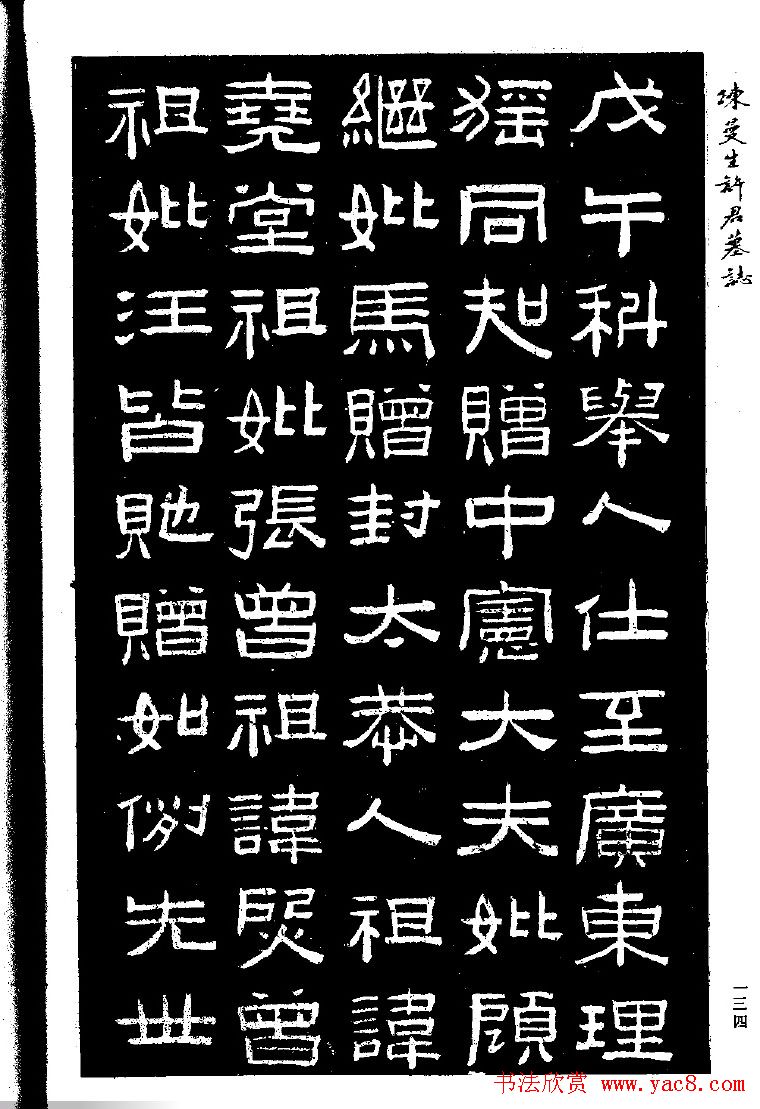 陳曼生許君墓誌
戊午科舉人仕至廣東理
猺同知贈中憲大夫妣顧
繼妣馬贈封太恭人祖諱
堯堂祖妣張曾祖諱曾
祖妣汪皆貤贈如例先世
一三四
书法欣赏 www.yac8.com